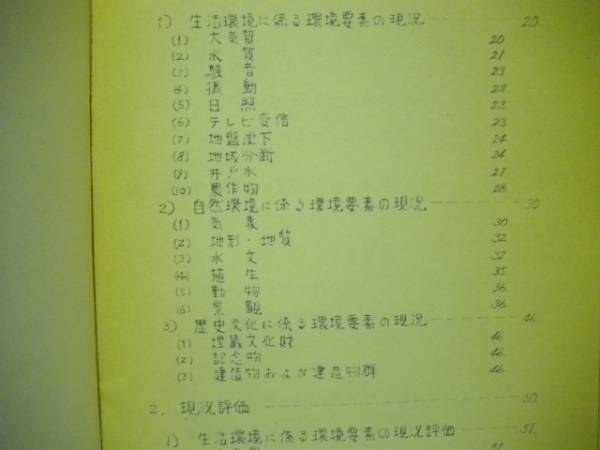 1) 生活環境に係る環境要素の現況 20
(1) 大気質 20
(2) 水質 21
(3) 騒音 23
(4) 振動 23
(5) 日照 23
(6) テレビ受信 23
(7) 地盤沈下 24
(8) 地域分断 24
(9) 井戸水 27
(10) 農作物 28
2) 自然環境に係る環境要素の現況 30
(1) 気象 30
(2) 地形・地質 32
(3) 水文 32
(4) 植生 35
(5) 動物 36
(6) 景観 36
3) 歴史文化に係る環境要素の現況 46
(1) 埋蔵文化財 46
(2) 記念物 46
(3) 建造物および建造物群 46
2. 現況評価 50
1) 生活環境に係る環境要素の現況評価 51
51